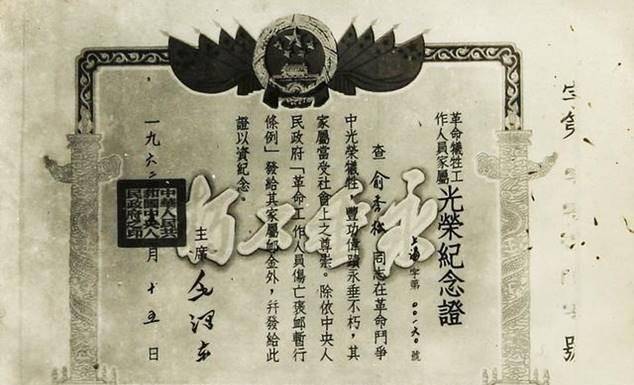 革命犧牲工
作人員家屬
光榮紀念證
上海字第00160號
查俞秀松同志在革命鬥爭
中光榮犧牲，豐功偉蹟永垂不朽，其
家屬當受社會上之尊崇。除依中央人
民政府「革命工作人員傷亡褒卹暫行
條例」發給其家屬卹金外，幷發給此
證以資紀念。
永垂不朽
主席毛澤东
中華人民共
和國中央人
民政府之印
一九六二
月十五日
字第
號